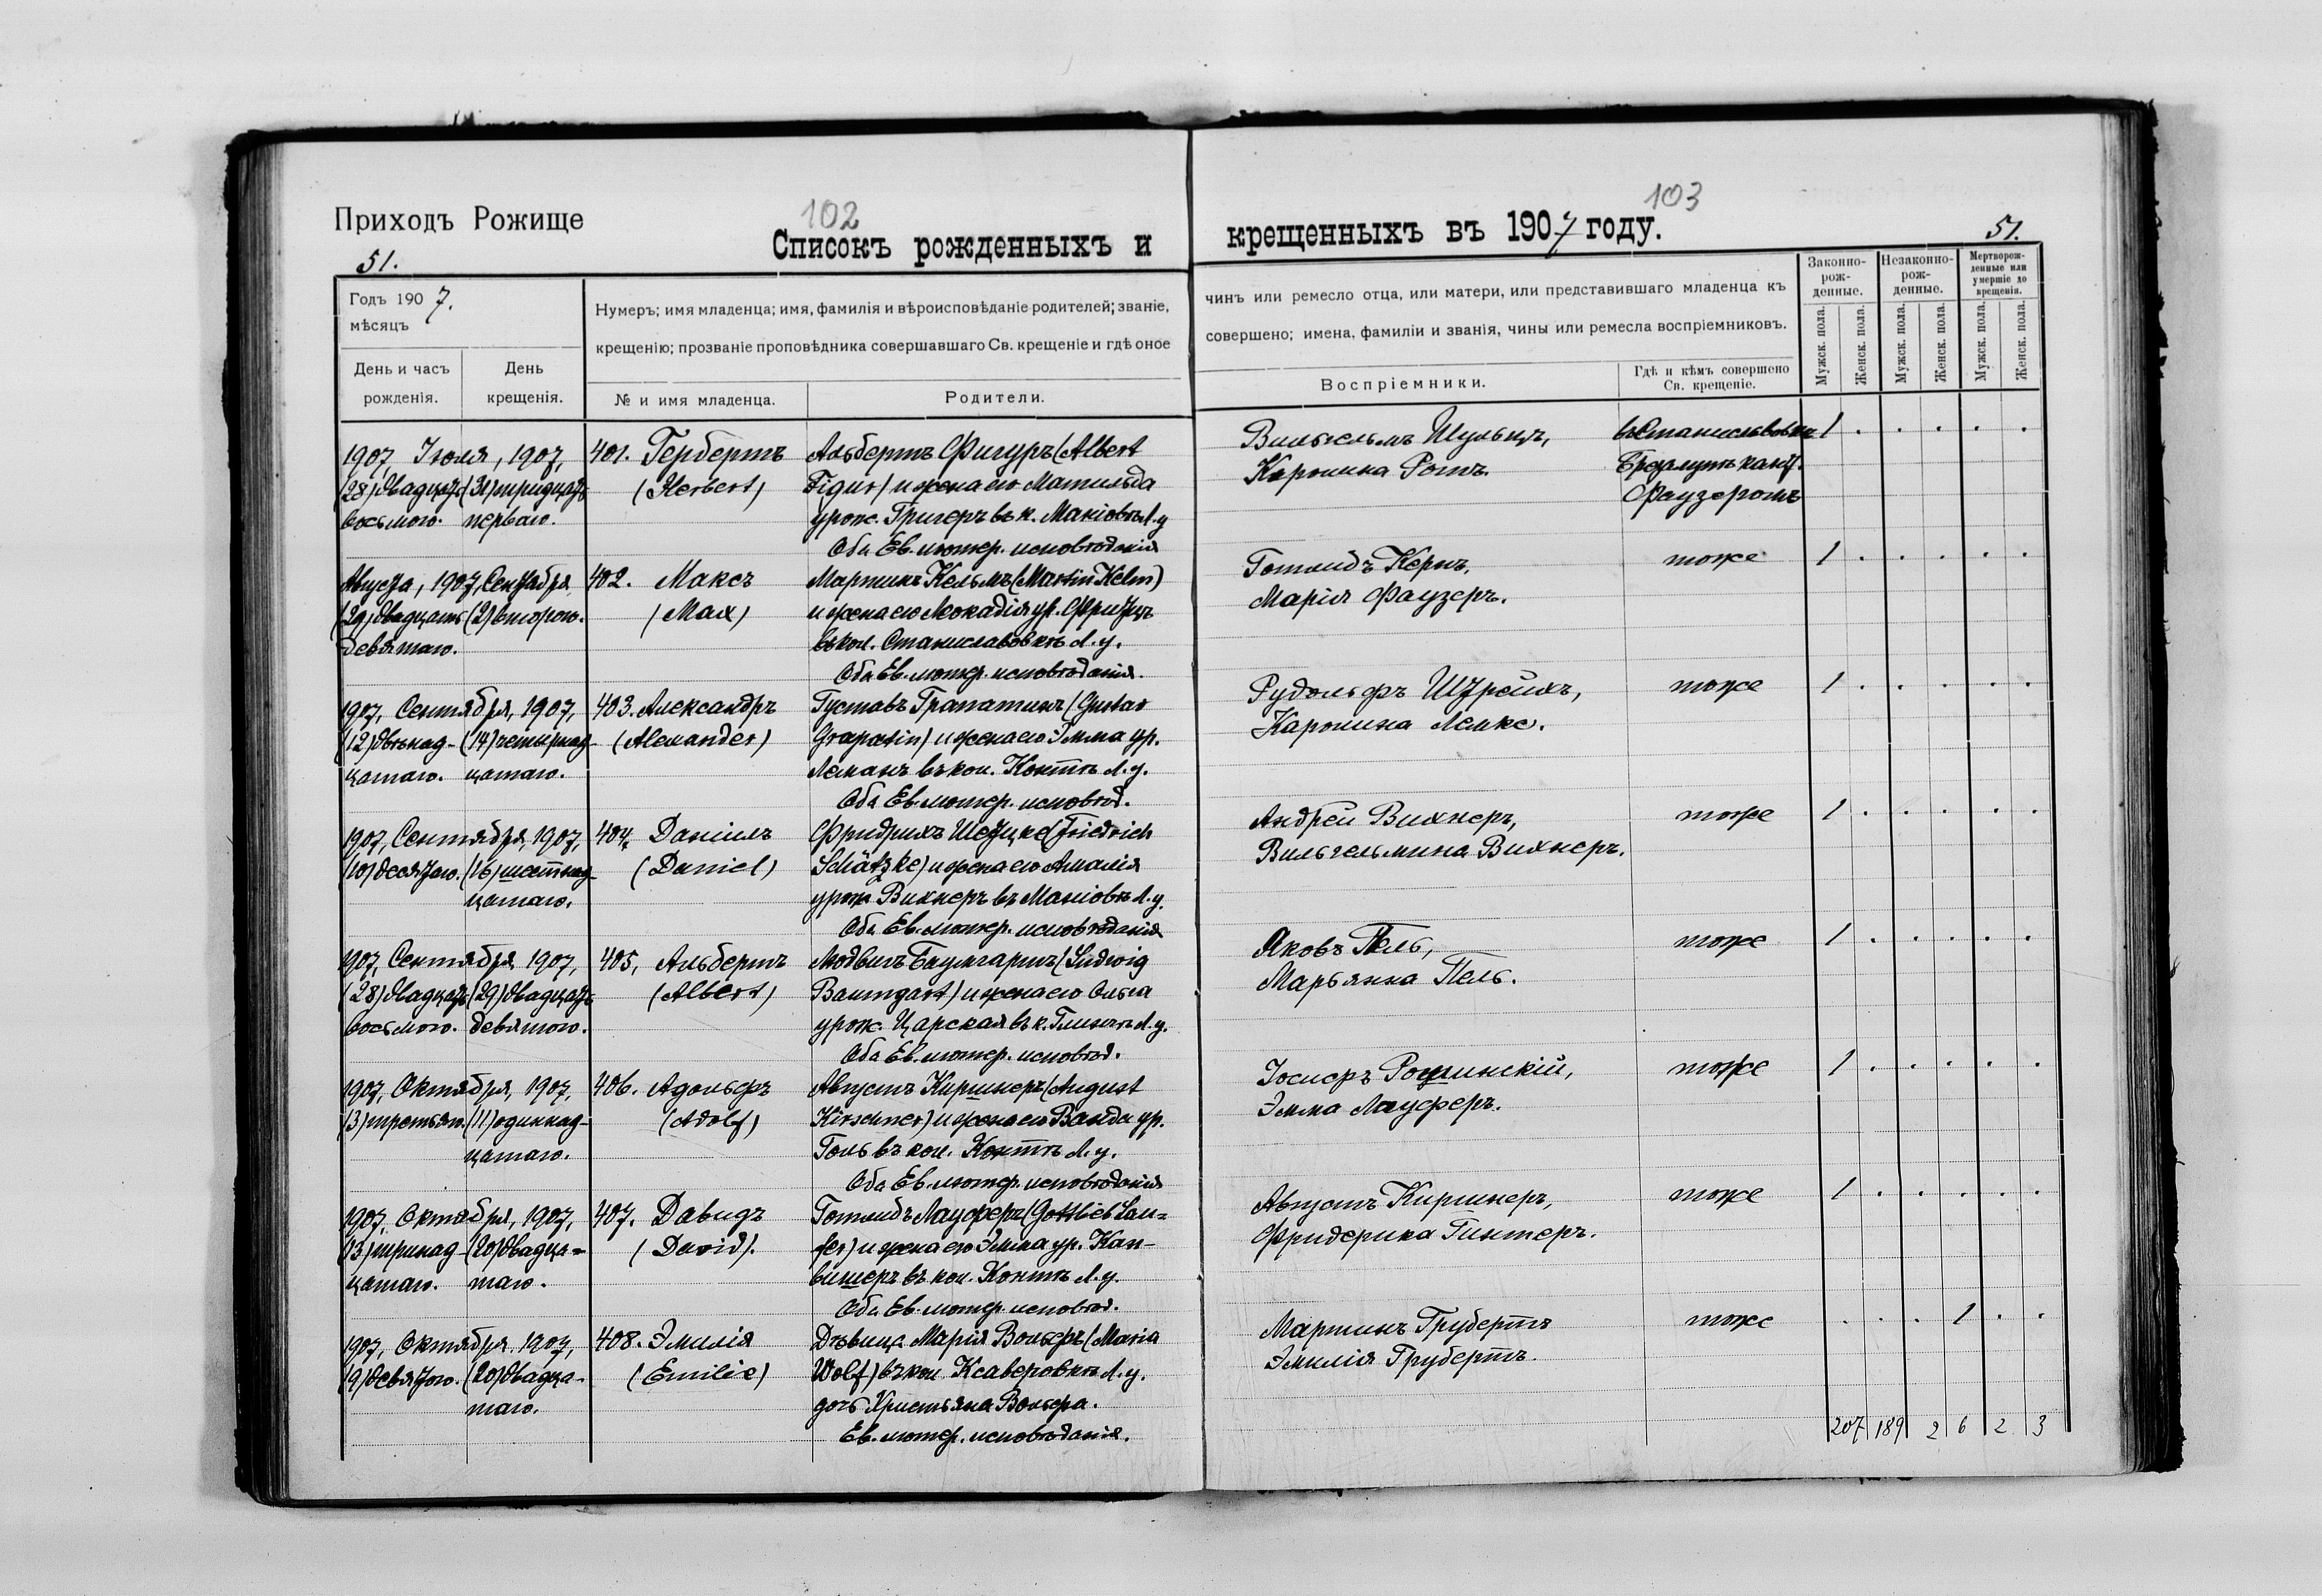 Приходъ Рожище
102
Списокъ рожденныхъ и
51.
Годъ 1907.
мѣсяцъ
День и часъ
рожденія.
День
крещенія.
Нумеръ; имя младенца; имя, фамилія и вѣроисповѣданіе родителей; званіе,
крещенію; прозваніе проповѣдника совершавшаго Св. крещеніе и гдѣ оное
№ и имя младенца.
Родители.
1907 Іюля, 1907,
(28) двадцать (31) тридцать
восьмого. перваго.
401. Гербертъ
(Herbert)
Альбертъ Фигуръ (Albert
Figur) и жена его Матильда
урож. Григеръ въ к. Маковѣ Л.у
Оба Ев. лютер. исповѣданія
Августа, 1907, Сентября
(29) двадцать (2) второго.
девятаго.
402. Максъ
(Max)
Мартинъ Кельмъ (Martin Kelm)
и жена его Леокадія ур.
въ кол. Станиславовкѣ Л.у.
Оба Ев. лютер. исповѣданія.
1907, Сентября, 1907,
(12) двѣнад- (14) четырнад-
цатаго. цатаго.
403. Александръ
(Alexander)
Густавъ Грапатинъ (Gustav
Grapatin) и жена его Эмма ур.
Леманъ въ кол. Контѣ Л.у.
Оба Ев. лютер. исповѣд.
1907, Сентября, 1907,
(10) десятаго. (16) шестнад-
цатаго.
404. Даніилъ
(Daniel)
Фридрихъ Шетцке (Friedrich
Schätzke) и жена его Амалія
урож. Вихнеръ въ Маковѣ Л.у.
Оба Ев. лютер. исповѣданія
1907, Сентября, 1907,
(28) двадцать (29) двадцать
восьмого. девятого.
405, Альбертъ
(Albert)
Людвигъ Баумгартъ (Ludwig
Baumgart) и жена его Ольга
урож. Царская въ к. Глинѣ Л.у.
Оба Ев. лютер. исповѣд.
1907, Октября, 1907,
(3) третьяго. (11) одиннад-
цатаго.
406. Адольфъ
(Adolf)
Августъ Киршнеръ (August
Kirschner) и жена его Ванда ур.
Голь въ кол. Контѣ Л.у.
Оба Ев. лютер. исповѣданія
1907, Октября, 1907,
(13) тринад- (20) двадца-
цатаго. таго.
407. Давидъ
(David).
Готлибъ Лауферъ (Gottlieb Lau=
fer) и жена его Эмма ур. Кан-
вишеръ въ кол. Контѣ Л.у.
Оба Ев. лютер. исповѣд.
1907, Октября, 1907,
(9) девятого. (20) двадца-
таго.
408. Эмилія
(Emilie)
Дѣвица Марія Вольфъ (Maria
Wolf) въ кол. Ксаверовкѣ Л.у.
дочь Христьяна Вольфа.
Ев. лютер. исповѣданія.
103
крещенныхъ въ 1907 году.
51.
чинъ или ремесло отца, или матери, или представившаго младенца къ
совершено; имена, фамиліи и званія, чины или ремесла воспріемниковъ.
Воспріемники.
Гдѣ и кѣмъ совершено
Св. крещеніе.
Законно-
рож-
денные.
Незаконно-
рож-
денные.
Мертворож-
денные или
умершіе до
крещенія.
Мужск. пола.
Женск. пола.
Мужск. пола.
Женск. пола.
Мужск. пола.
Женск. пола.
Вильгельмъ Шульцъ, въ Станиславовкѣ 1 . . . . .
Каролина Ротъ кант.
Фаузеромъ
Готлибъ Кернъ, тоже 1 . . . . .
Марія Фаузеръ.
Рудольфъ Штрейхъ, тоже 1 . . . . .
Каролина Лемке.
Андрей Вихнеръ, тоже 1 . . . . .
Вильгельмина Вихнеръ.
Яковъ Пель, тоже 1 . . . . .
Марьянна Пель.
Іосифъ Рошинскій, тоже 1 . . . . .
Эмма Лауферъ.
Августъ Киршнеръ, тоже 1 . . . . .
Фридерика Гинтеръ.
Мартинъ Грубертъ тоже . . . 1 . .
Эмилія Грубертъ.
207 189 2 6 2 3